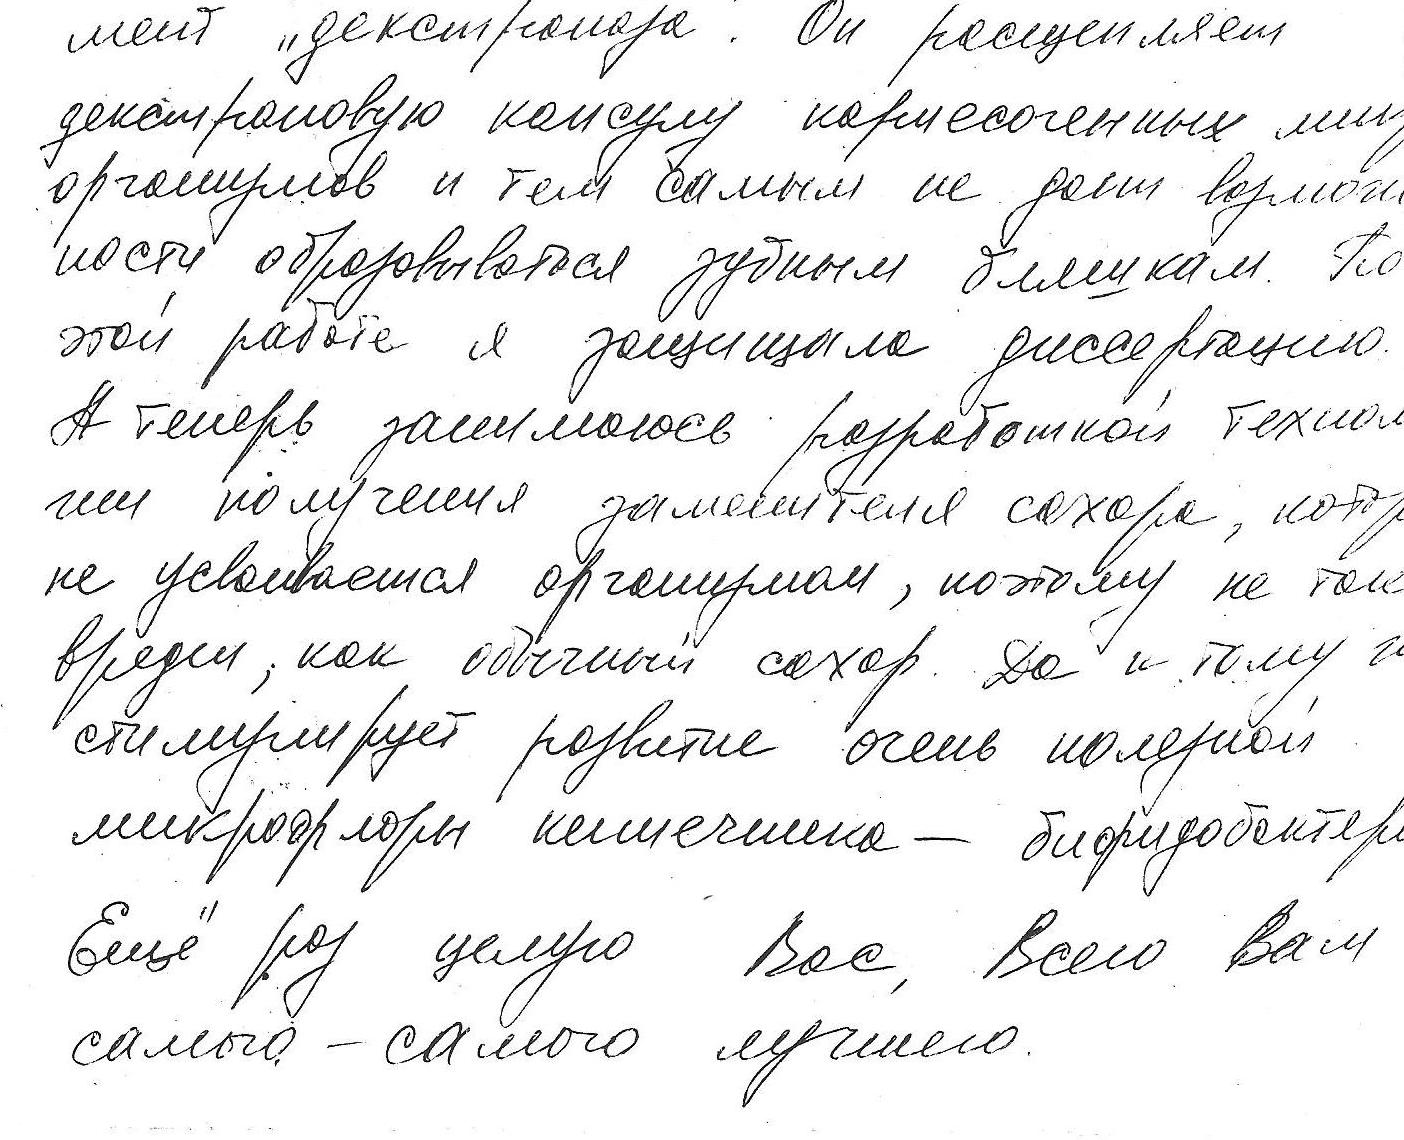 мент „декстраназа". Он расщепляет
декстрановую капсулу кариесогенных мик
организмов и тем самым не дает возмож
ности образовываться зубным бляшкам. По
этой работе я защищала диссертацию.
А теперь занимаюсь разработкой технол
гии получения заменителя сахара, котор
не усваивается организмом, поэтому не так
вреден, как обычный сахар. Да к тому ж
стимулирует развитие очень полезной
микрофлоры кишечника — бифидобактери
Ещё раз целую Вас, Всего Вам
самого - самого лучшего.